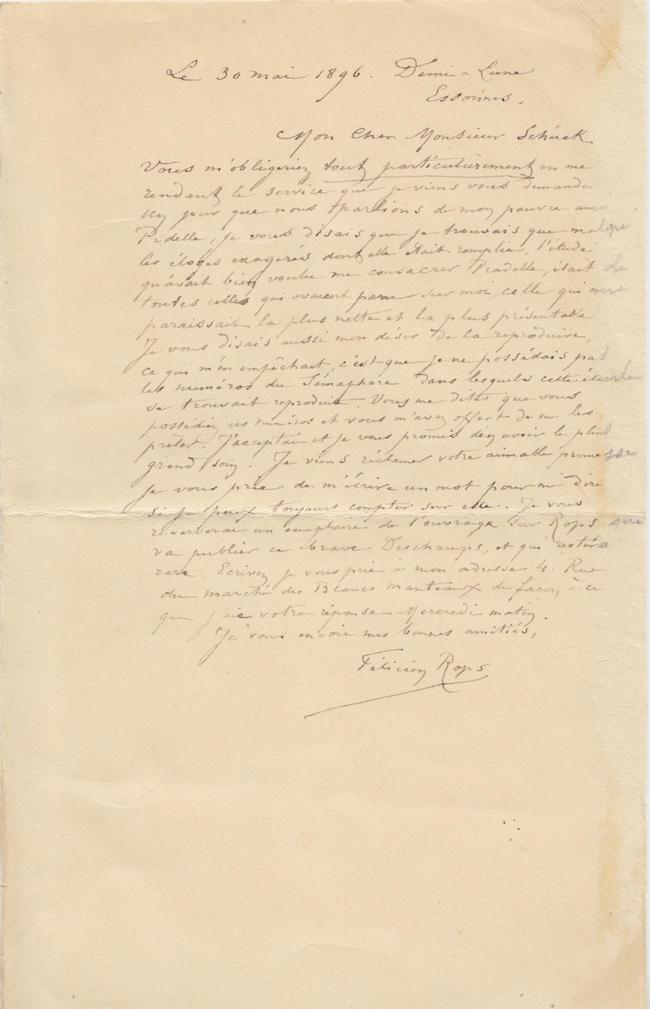 Le 30 mai 1896. Demi-Lune
Essonnes.
Mon Cher Monsieur Schück
Vous m'obligeriez tout particulièrement en me
rendant le service que je viens vous demander
Un jour que nous parlions de mon pauvre ami
Pradelle, je vous disais que je trouvais que malgré
les éloges exagérés dont elle était remplie, l'étude
qu'avait bien voulu me consacrer Pradelle, était de
toutes celles qui avaient paru sur moi, celle qui me
paraissait la plus nette et la plus présentable
Je vous disais aussi mon désir de la reproduire,
ce qui m'en empêchait, c'est que je ne possédais pas
les numéros du Sémaphore dans lesquels cette étude
se trouvait reproduite. Vous me dites que vous
possédiez ces numéros et vous m'avez offert de me les
prêter. J'acceptai et je vous promis d'en avoir le plus
grand soin. Je viens réclamer votre aimable promesse
je vous prie de m'écrire un mot pour me dire
si je peux toujours compter sur elle. Je vous
réserverai un exemplaire de l'ouvrage sur Rops que
va publier ce brave Deschamps, et qui restera
rare. Ecrivez je vous prie à mon adresse 4. Rue
du marché des Blancs Manteaux de façon à ce
que j'aie votre réponse Mercredi matin.
Je vous envoie mes bonnes amitiés,
Félicien Rops